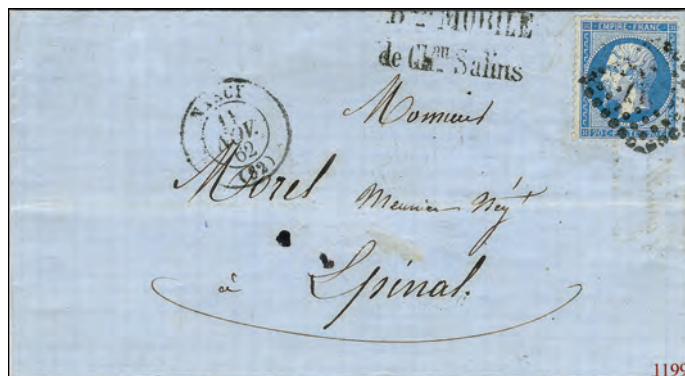 Bte MOBILE
de Chau Salins
EMPIRE FRANC
20 C
NANCY
11
NOV.
62
(52)
Monsieur
Morel Meunier Négt
à Epinal.
1199